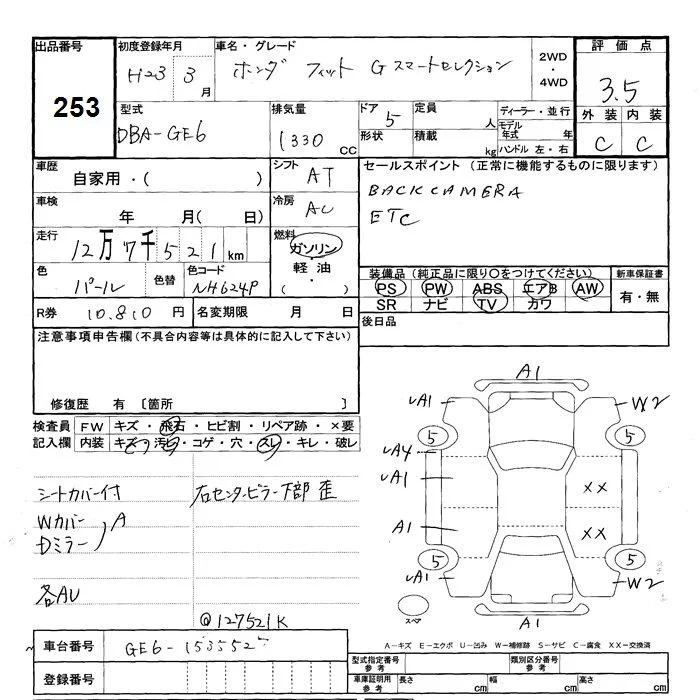 出品番号 初度登録年月 車名・グレード 2WD・4WD 評価点
253
H23 3月 ホンダ フィット Gスマートセレクション 3.5
型式 排気量 ドア 定員 ディーラー・並行 外装 内装
DBA-GE6 1330 CC 5 人 モデル年式 年 C C
形状 積載 kg ハンドル 左・右
車歴 シフト セールスポイント (正常に機能するものに限ります)
自家用・( ) AT BACK CAMERA
車検 冷房 ETC
年 月( 日) AC
走行 燃料
12万7千521km ガソリン
色 色替 色コード 軽油 装備品(純正品に限り○をつけてください) 新車保証書
パール NH624P ・( ) PS PW ABS エアB AW 有・無
SR ナビ TV カワ
R券 10.810円 名変期限 月 日 後日品
注意事項申告欄(不具合内容等は具体的に記入して下さい)
修復歴 有 〔箇所 〕
検査員 FW キズ・飛石・ヒビ割・リペア跡・×要
記入欄 内装 キズ・汚・コゲ・穴・スレ・キレ・破レ
シートカバー付 右センターピラー下部歪
Wカバー
Dミラー A
各AU
@127521K
A1
UA1 W2
5 5
UA4
UA1 XX
A1 XX
5 5
UA1 W2
スペア A1
A-キズ E-エクボ U-凹み W-補修跡 S-サビ C-腐食 XX-交換済
車台番号 GE6-1535527
型式指定番号 参考 類別区分番号 参考
登録番号 車庫証明用 参考 長さ cm 幅 cm 高さ cm